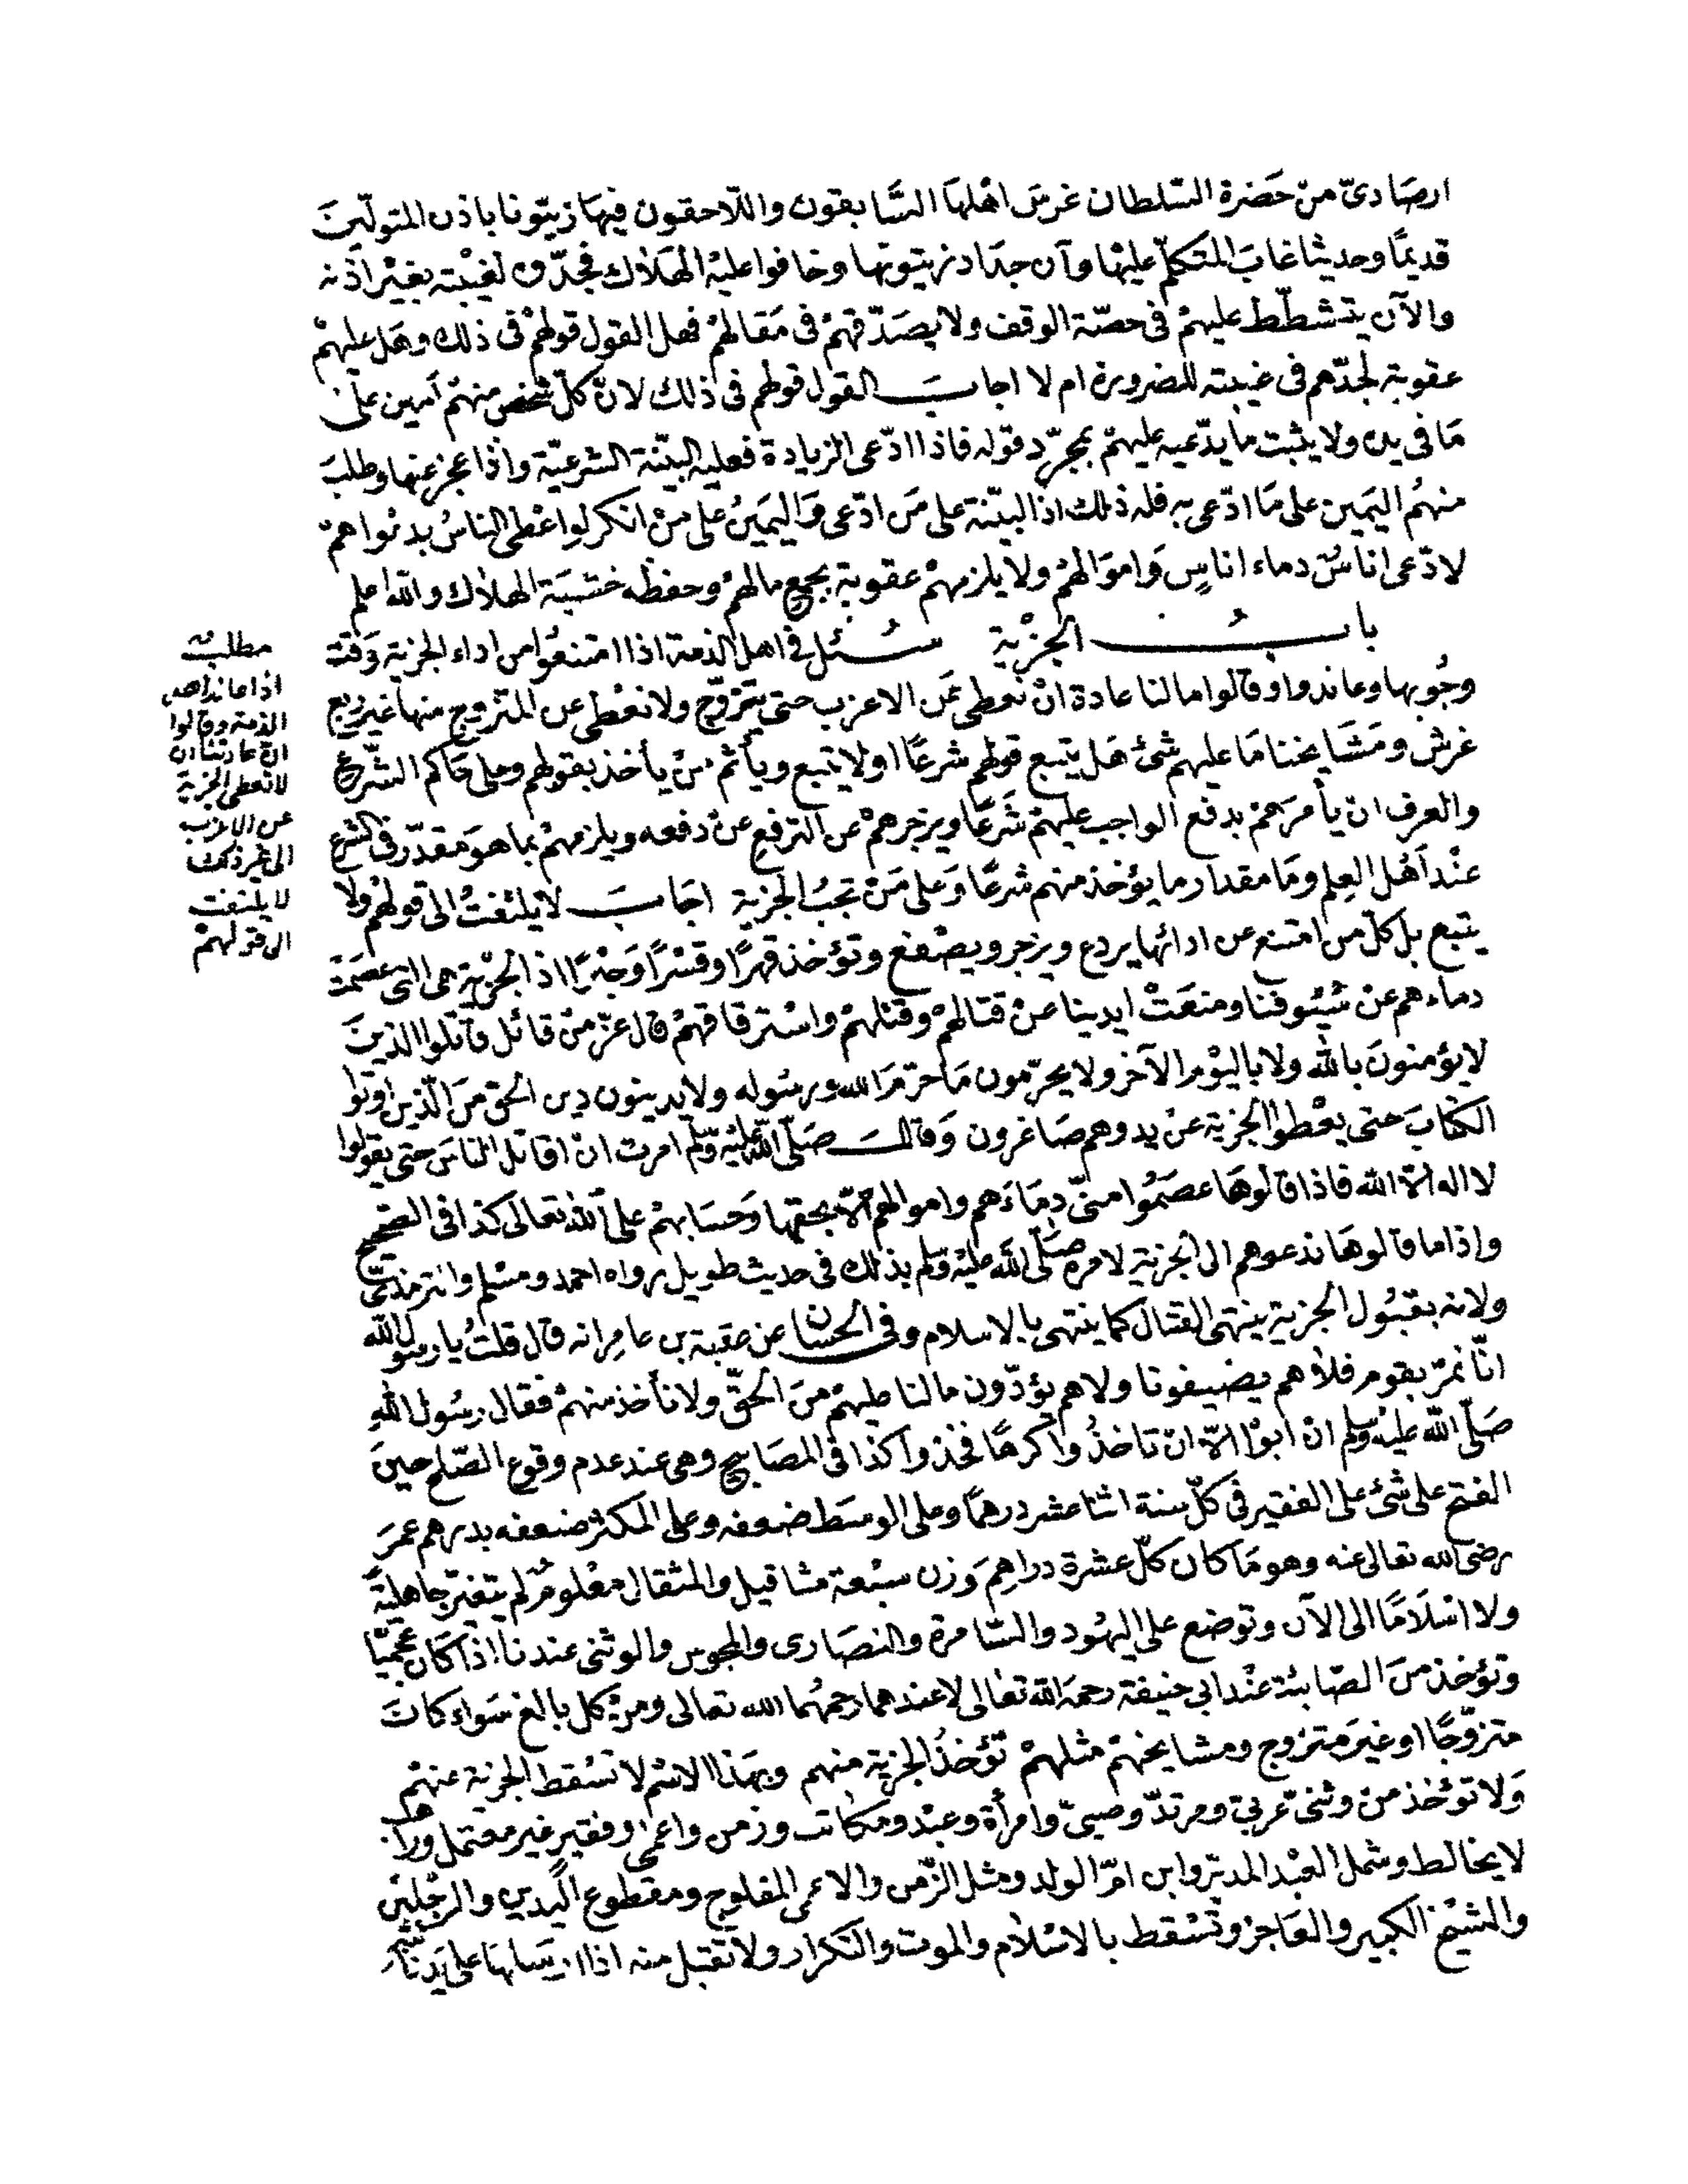 ارصادىّ من حَضرة السّلطان غرسَ اهْلهَا السَّابقون واللّاحقون فيهَا زيتونا باذن المتولّينَ
قديمًا وحديثا غابَ المتكلّم عليْها وآن جدَاد زيتونها وخافوا عليْه الهَلاك فجدّوه لغيْبته بغيْر اذنه
والآن يتشطّط عليهمْ فى حصّة الوقف ولا يصَدّقهمْ فى مَقالهمْ فهل القول قولهمْ فى ذلك وهَل عليهمْ
عقوبة لجدّهم فى غيبته للضرورة ام لا اجابَ القول قولهم فى ذلك لانّ كلّ شخص منهمْ أمين على
مَا فى يده ولا يثبت ما يدّعيه عليهمْ بمجرّد قوله فاذا ادّعى الزيادة فعليه البيّنة الشرعيّة واذا عجز عنها وطلبَ
منهُم اليَمين على مَا ادّعى به فله ذلك اذ البيّنة على مَن ادّعى وَاليَمينُ على منْ انكر لو اعْطى الناسُ بدعْواهمْ
لادّعى اناسٌ دماء اناسٍ وَاموَالهمْ ولا يلزمهمْ عقوبة بجمع مالهمْ وحفظه خشيَة الهلاك والله اعلم
بابُ الجزْية سُئل فى اهل الذمة اذا امتنعُوا من اداء الجزية وَقت
وجُوبها وعاندوا وقالوا ما لنا عادة انْ نعطى عَن الاعزب حتى يتزوّج ولا نعْطى عن المتزوج منها غير ربع
غرش ومَشَايخنا مَا عليهم شئ هَل يتبع قولهم شرعًا اولا يتبع ويأثم منْ يأخذ بقولهم وعلى حَاكم الشّرع
والعرف ان يأمرَهمْ بدفع الواجب عليهمْ شَرعًا ويزجرهمْ عن الترفع عنْ دفعه ويلزمهمْ بما هوَ مقدّر فى الشرع
عنْد اَهْل العِلم ومَا مقدار ما يؤخذ منهم شرعًا وَعلى مَنْ تجبُ الجزية اجَابَ لا يلتفتُ الى قولهمْ ولا
يتبع بل كلّ من امتنع عن ادائها يردع ويزجر ويصْفع وتؤخذ قهرًا وقسْرًا وَجبْرًا اذ الجزْية هى التى عصَمَتْ
دماءهم عنْ سُيُوفنا ومنعَتْ ايدينا عنْ قتالهمْ وقتلهمْ واسْترقاقهمْ قال عزّ منْ قائل قاتلوا الذينَ
لا يؤمنونَ بالله ولا باليَوْم الآخر ولا يحرّمون مَا حرّمَ الله ورسُوله ولا يدينون دين الحق منَ الّذين اوتوا
الكتابَ حتى يعْطوا الجزية عنْ يد وهم صَاغرون وَقالَ صَلّى الله عليْه وَسلّم امرت ان اقاتل الناسَ حتى يقولوا
لا اله الّا الله فاذا قالوهَا عصَمُوا منىّ دِمَاءَهم واموالهم الّا بحقها وَحسَابهمْ على الله تعالى كذا فى الصّحيح
واذا ما قالوهَا ندعوهم الى الجزية لامره صَلّى الله عليْه وَسلّم بذلك فى حديث طويل رواه احمد ومسْلم والترمذىّ
ولانه بقبُول الجزية ينتهى القتال كما ينتهى بالاسلام وفى الحسَان عن عقبة بن عامِر انه قال قلتُ يا رسول الله
انّا نمرّ بقوم فلا هم يضيفونا ولا هم يؤدّون ما لنا عليهمْ منَ الحقّ ولا نأخذ منهمْ فقال رسُول اللهِ
صَلّى الله عليْه وسلم انْ ابوْا الّا ان تاخذُوا كرهًا فخذوا كذا فى المصَابيح وهى عند عدم وقوع الصّلح حينَ
الفتح على شئ على الفقير فى كلّ سنة اثنا عشر درهمًا وعلى الوسَط ضعفه وعلى المكثر ضعفه بدرهم عمرَ
رضى الله تعالى عنه وهو مَا كان كلّ عشرة دراهِمَ وَزن سبْعة مثاقيل والمثقال معْلومٌ لم يتغيّر جاهليَّةً
ولا اسْلَامًا الى الآن وتوضع على اليهُود والسّامرة والنصَارى والمجوس والوثنى عندنا اذا كان عجميّا
وتؤخذ منَ الصّابئة عنْد ابى حنيفة رحمَه الله تعَالى لا عندهما رحمهُما الله تعالى ومنْ كل بالغ سَواء كانَ
متزوّجًا او غيرَ متزوج ومشايخهمْ مثلهمْ تؤخذُ الجزية منهم وبهَذا الاسْم لا تسْقط الجزية عنهْم
وَلا تؤخذ منْ وثنىّ عَربىّ ومرتدّ وصبىّ وامرأة وعبْد ومكاتب وزمن واعمى وفقير غير معتمل وراهب
لا يخالط وشمل العبْد المدبّر وابن امّ الولد ومثل الزّمن والاعمى المفلوج ومقطوع اليدين والرجْلين
والشيْخ الكبير والعَاجز وتسْقط بالاسْلام والموت والتكرار ولا تقبل منه اذا ارسَلها على يَد نائبه
مطلب
اذا عاند اهل
الذمة وقالوا
ان عادتنا ان
لا نعطى الجزية
عن الاعزب
الى غير ذلك
لا يلتفت
الى قولهمْ